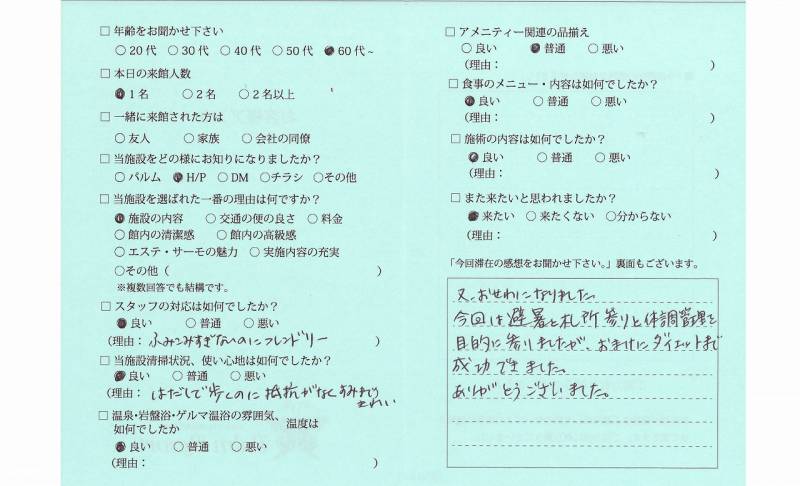 □ 年齢をお聞かせ下さい
○20代 ○30代 ○40代 ○50代 ●60代～
□ 本日の来館人数
●1名 ○2名 ○2名以上
□ 一緒に来館された方は
○友人 ○家族 ○会社の同僚
□ 当施設をどの様にお知りになりましたか？
○パルム ●H/P ○DM ○チラシ ○その他
□ 当施設を選ばれた一番の理由は何ですか？
●施設の内容 ○交通の便の良さ ○料金
○館内の清潔感 ○館内の高級感
○エステ・サーモの魅力 ○実施内容の充実
○その他（ ）
※複数回答でも結構です。
□ スタッフの対応は如何でしたか？
●良い ○普通 ○悪い
(理由：ふみこみすぎないのにフレンドリー )
□ 当施設清掃状況、使い心地は如何でしたか？
●良い ○普通 ○悪い
(理由：はだしで歩くのに抵抗がなくすみずみまできれい )
□ 温泉・岩盤浴・ゲルマ温浴の雰囲気、温度は
如何でしたか
●良い ○普通 ○悪い
(理由： )
□ アメニティー関連の品揃え
○良い ●普通 ○悪い
(理由： )
□ 食事のメニュー・内容は如何でしたか？
●良い ○普通 ○悪い
(理由： )
□ 施術の内容は如何でしたか？
●良い ○普通 ○悪い
(理由： )
□ また来たいと思われましたか？
●来たい ○来たくない ○分からない
(理由： )
「今回滞在の感想をお聞かせ下さい。」裏面もございます。
又、おせわになりました。
今回は避暑と札所参りと体調管理を
目的に参りましたが、おまけにダイエットまで
成功できました。
ありがとうございました。